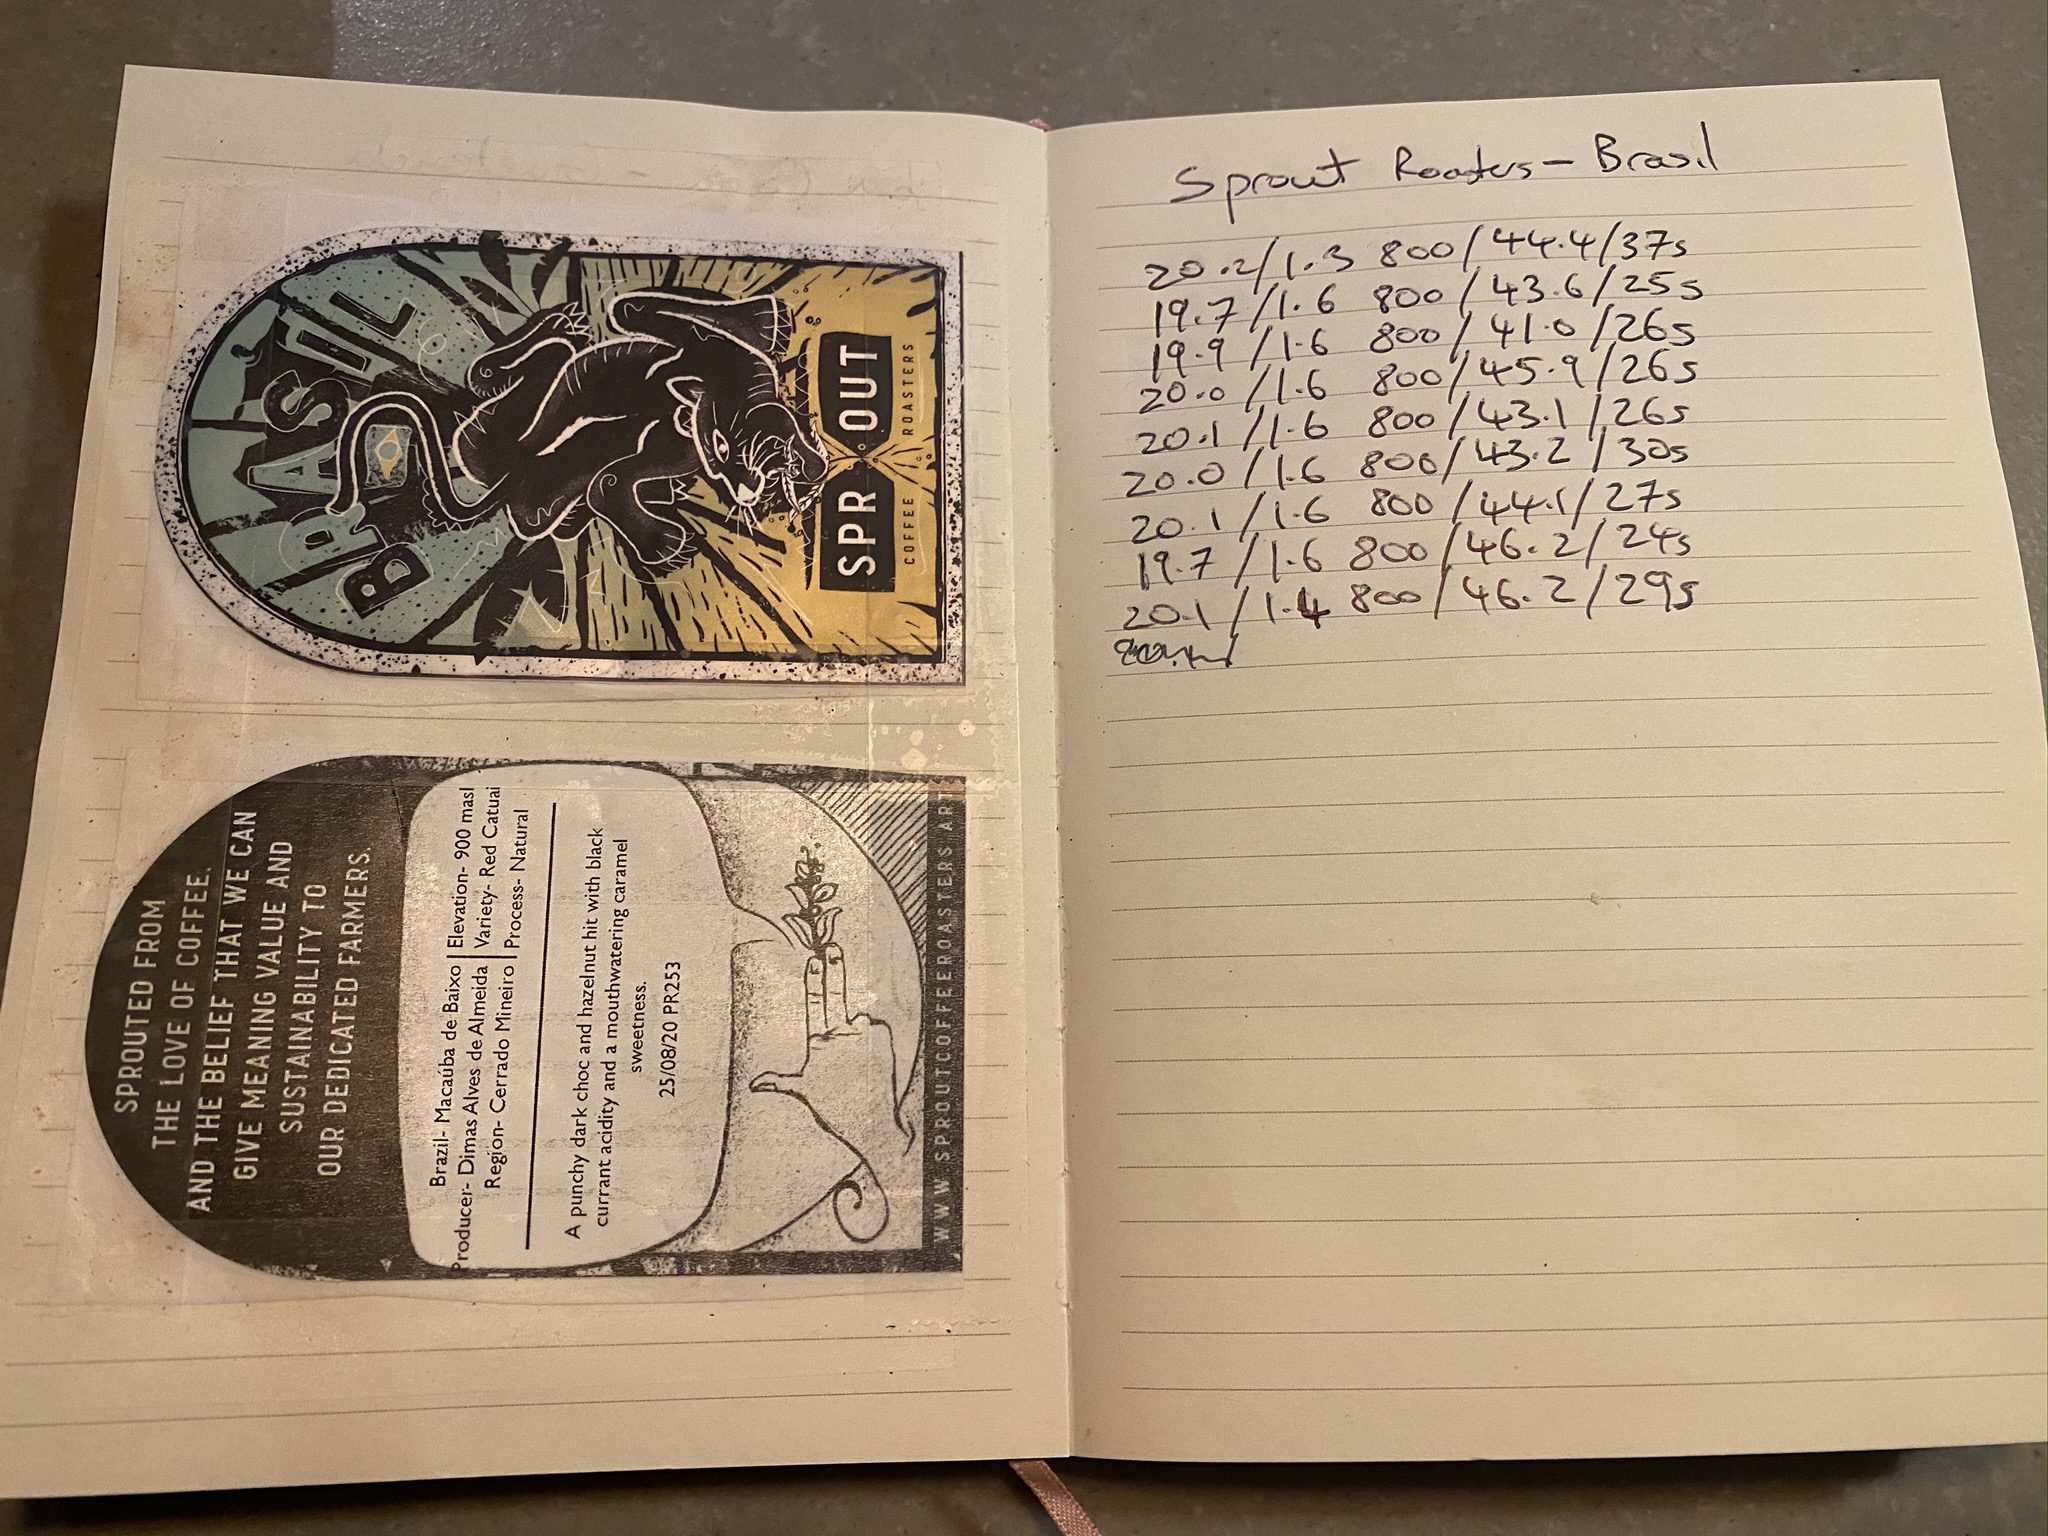 BRASIL
SPROUT
COFFEE ROASTERS
SPROUTED FROM
THE LOVE OF COFFEE.
AND THE BELIEF THAT WE CAN
GIVE MEANING VALUE AND
SUSTAINABILITY TO
OUR DEDICATED FARMERS.
Brazil- Macaúba de Baixo | Elevation- 900 masl
Producer- Dimas Alves de Almeida | Variety- Red Catuai
Region- Cerrado Mineiro | Process- Natural
A punchy dark choc and hazelnut hit with black
currant acidity and a mouthwatering caramel
sweetness.
25/08/20 PR253
WWW.SPROUTCOFFEEROASTERS.ART
Sprout Roasters - Brasil
20.2/1.3 800/44.4/37s
19.7/1.6 800/43.6/25s
19.9/1.6 800/41.0/26s
20.0/1.6 800/45.9/26s
20.1/1.6 800/43.1/26s
20.0/1.6 800/43.2/30s
20.1/1.6 800/44.1/27s
19.7/1.6 800/46.2/24s
20.1/1.4 800/46.2/29s